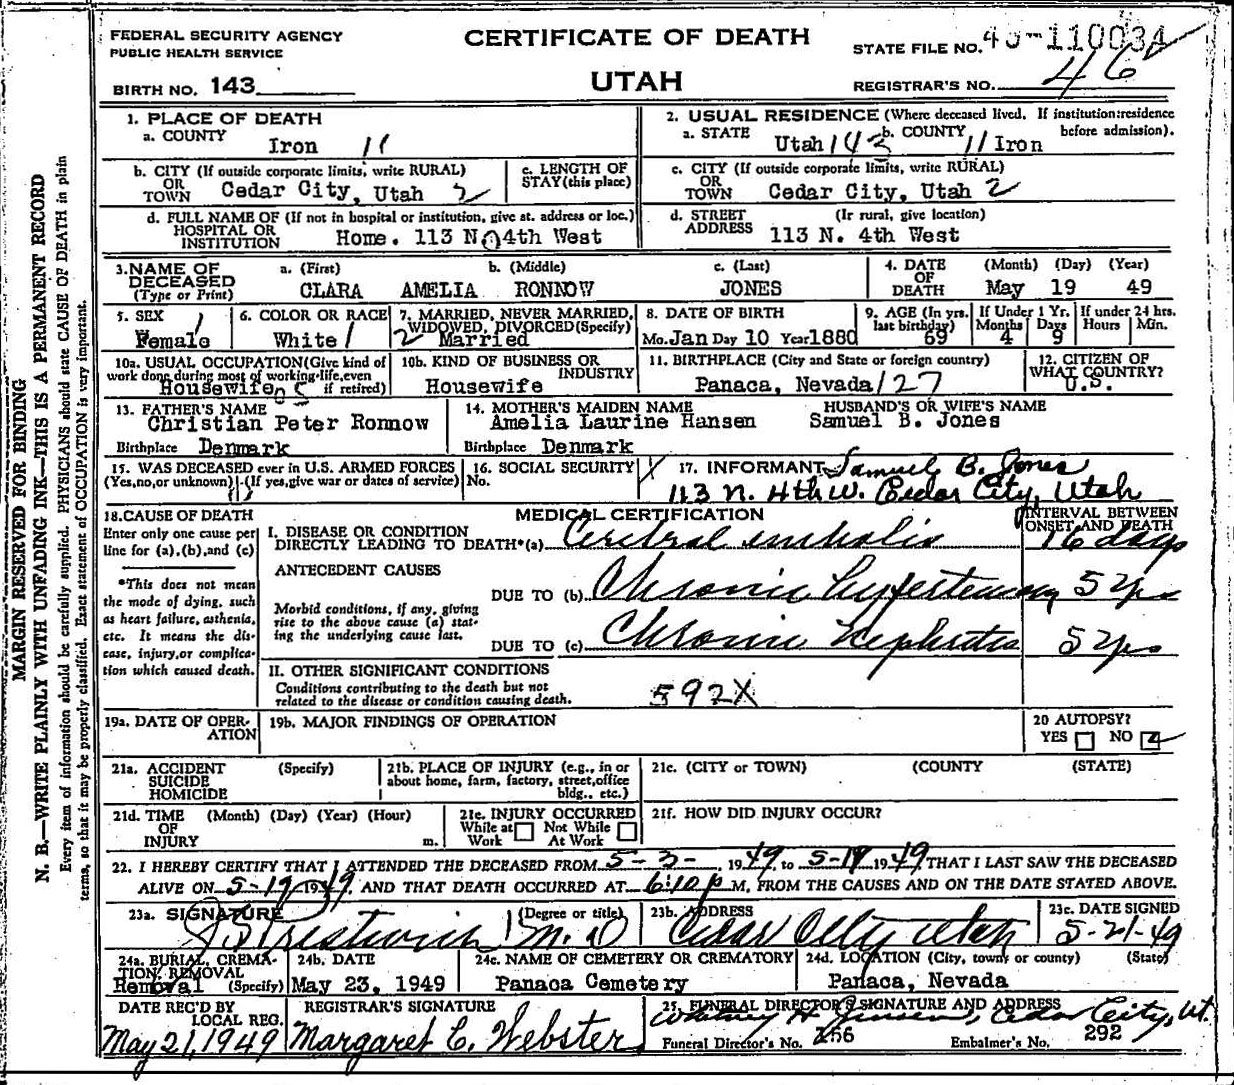 MARGIN RESERVED FOR BINDING
N. B.—WRITE PLAINLY WITH UNFADING INK—THIS IS A PERMANENT RECORD
Every item of information should be carefully supplied. PHYSICIANS should state CAUSE OF DEATH in plain
terms, so that it may be properly classified. Exact statement of OCCUPATION is very important.
FEDERAL SECURITY AGENCY
PUBLIC HEALTH SERVICE
BIRTH NO. 143
CERTIFICATE OF DEATH
UTAH
STATE FILE NO. 49-110034
REGISTRAR'S NO. 46
1. PLACE OF DEATH
a. COUNTY
Iron 11
2. USUAL RESIDENCE (Where deceased lived. If institution:residence
a. STATE b. COUNTY before admission).
Utah 143 11 Iron
b. CITY (If outside corporate limits, write RURAL)
OR
TOWN Cedar City, Utah 2
c. LENGTH OF
STAY (this place)
c. CITY (If outside corporate limits, write RURAL)
OR
TOWN Cedar City, Utah 2
d. FULL NAME OF (If not in hospital or institution, give st. address or loc.)
HOSPITAL OR
INSTITUTION Home. 113 N 4th West
d. STREET (Ir rural, give location)
ADDRESS 113 N. 4th West
3. NAME OF a. (First) b. (Middle) c. (Last)
DECEASED
(Type or Print) CLARA AMELIA RONNOW JONES
4. DATE (Month) (Day) (Year)
OF
DEATH May 19 49
5. SEX 1
Female
6. COLOR OR RACE
White 1
7. MARRIED, NEVER MARRIED,
WIDOWED, DIVORCED (Specify)
2 Married
8. DATE OF BIRTH
Mo. Jan Day 10 Year 1880
9. AGE (In yrs. If Under 1 Yr. If under 24 hrs.
last birthday) Months Days Hours Min.
69 4 9
10a. USUAL OCCUPATION (Give kind of
work done during most of working life, even
Housewife if retired)
10b. KIND OF BUSINESS OR
INDUSTRY
Housewife
11. BIRTHPLACE (City and State or foreign country)
Panaca, Nevada 127
12. CITIZEN OF
WHAT COUNTRY?
U.S.
13. FATHER'S NAME
Christian Peter Ronnow
Birthplace Denmark
14. MOTHER'S MAIDEN NAME
Amelia Laurine Hansen
Birthplace Denmark
HUSBAND'S OR WIFE'S NAME
Samuel B. Jones
15. WAS DECEASED ever in U.S. ARMED FORCES
(Yes, no, or unknown) (If yes, give war or dates of service)
16. SOCIAL SECURITY
No.
17. INFORMANT Samuel B. Jones
113 N. 4th W. Cedar City, Utah
18. CAUSE OF DEATH
Enter only one cause per
line for (a), (b), and (c)
*This does not mean
the mode of dying, such
as heart failure, asthenia,
etc. It means the dis-
ease, injury, or complica-
tion which caused death.
MEDICAL CERTIFICATION
INTERVAL BETWEEN
ONSET AND DEATH
I. DISEASE OR CONDITION
DIRECTLY LEADING TO DEATH*(a) Cerebral embolis 16 days
ANTECEDENT CAUSES
DUE TO (b) Chronic Hypertension 5 yrs
Morbid conditions, if any, giving
rise to the above cause (a) stat-
ing the underlying cause last.
DUE TO (c) Chronic Nephritis 5 yrs
II. OTHER SIGNIFICANT CONDITIONS
Conditions contributing to the death but not
related to the disease or condition causing death.
592X
19a. DATE OF OPER-
ATION
19b. MAJOR FINDINGS OF OPERATION
20 AUTOPSY?
YES NO
21a. ACCIDENT (Specify)
SUICIDE
HOMICIDE
21b. PLACE OF INJURY (e.g., in or
about home, farm, factory, street, office
bldg., etc.)
21c. (CITY or TOWN) (COUNTY) (STATE)
21d. TIME (Month) (Day) (Year) (Hour)
OF
INJURY m.
21e. INJURY OCCURRED
While at Not While
Work At Work
21f. HOW DID INJURY OCCUR?
22. I HEREBY CERTIFY THAT I ATTENDED THE DECEASED FROM 5-3-, 1949, to 5-19 1949 THAT I LAST SAW THE DECEASED
ALIVE ON 5-19 1949, AND THAT DEATH OCCURRED AT 6:10 p M, FROM THE CAUSES AND ON THE DATE STATED ABOVE.
23a. SIGNATURE (Degree or title)
Prestwich M.D
23b. ADDRESS
Cedar City Utah
23c. DATE SIGNED
5-21-49
24a. BURIAL, CREMA-
TION, REMOVAL
Removal (Specify)
24b. DATE
May 23, 1949
24c. NAME OF CEMETERY OR CREMATORY
Panaca Cemetery
24d. LOCATION (City, town, or county) (State)
Panaca, Nevada
DATE REC'D BY
LOCAL REG.
May 21, 1949
REGISTRAR'S SIGNATURE
Margaret C. Webster
25. FUNERAL DIRECTOR'S SIGNATURE AND ADDRESS
Cedar City, Ut.
Funeral Director's No. 256 Embalmer's No. 292